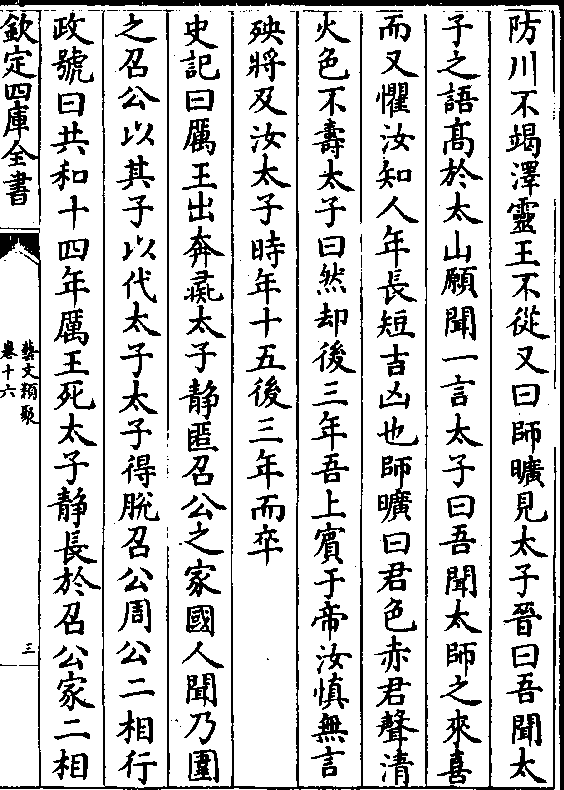 防川不竭澤靈王不從又曰師曠見太子晉曰吾聞太
子之語髙於太山願聞一言太子曰吾聞太師之來喜
而又懼汝知人年長短吉凶也師曠曰君色赤君聲清
火色不壽太子曰然却後三年吾上賓于帝汝慎無言
殃將及汝太子時年十五後三年而卒
史記曰厲王出奔彘太子静匿召公之家國人聞乃圍
之召公以其子以代太子太子得脫召公周公二相行
政號曰共和十四年厲王死太子静長於召公家二相
欽定四庫全書
藝文類聚
卷十六
三